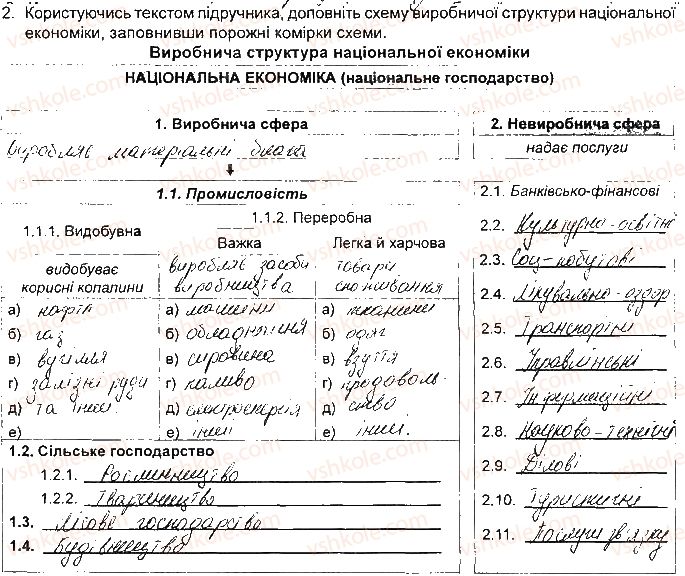 2. Користуючись текстом підручника, доповніть схему виробничої структури національної
економіки, заповнивши порожні комірки схеми.
Виробнича структура національної економіки
НАЦІОНАЛЬНА ЕКОНОМІКА (національне господарство)
1. Виробнича сфера
Виробляє матеріальні блага
1.1. Промисловість
1.1.1. Видобувна
видобуває
корисні копалини
а) нафта
б) газ
в) вугілля
г) залізні руди
д) та інші.
е)
1.1.2. Переробна
Важка
виробляє засоби
виробництва
а) машини
б) обладнання
в) сировина
г) паливо
д) електроенергія
е) інші
Легка й харчова
товари
споживання
а) тканини
б) одяг
в) взуття
г) продоволь-
д) ство
е) інші.
1.2. Сільське господарство
1.2.1. Рослинництво
1.2.2. Тваринництво
1.3. Лісове господарство
1.4. Будівництво
2. Невиробнича сфера
надає послуги
2.1. Банківсько-фінансові
2.2. Культурно-освітні
2.3. Соц-побутові
2.4. Лікувально-оздор
2.5. Транспортні
2.6. Управлінські
2.7. Інформаційні
2.8. Науково-технічні
2.9. Ділові
2.10. Туристичні
2.11. Послуги зв'язку
vshkole.com
vshkole.com
vshkole.com